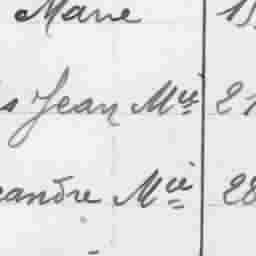 Marie
s Jean Mie 2
eandre Mie 28